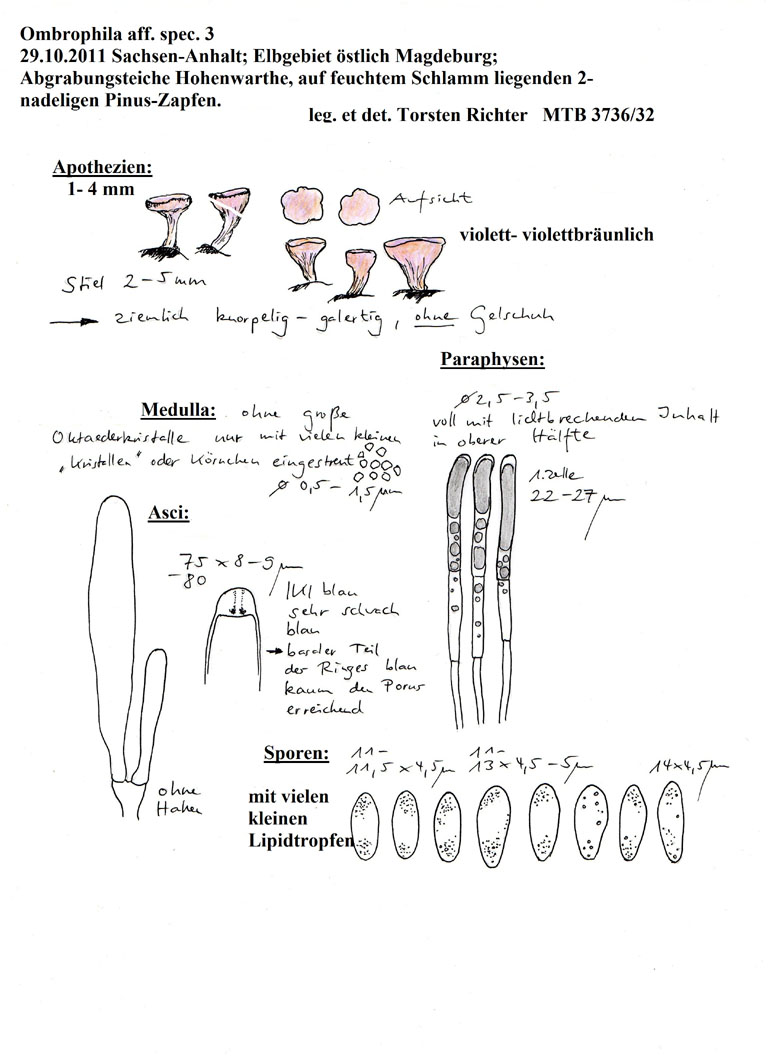 Ombrophila aff. spec. 3
29.10.2011 Sachsen-Anhalt; Elbgebiet östlich Magdeburg;
Abgrabungsteiche Hohenwarthe, auf feuchtem Schlamm liegenden 2-
nadeligen Pinus-Zapfen.
leg. et det. Torsten Richter MTB 3736/32
Apothezien:
1- 4 mm
Aufsicht
violett- violettbräunlich
Stiel 2-5mm
→ ziemlich knorpelig - galertig, ohne Gelschuh
Paraphysen:
ø 2,5-3,5
voll mit lichtbrechenden Inhalt
in oberer Hälfte
1. Zelle
22-27 µm
Medulla: ohne große
Oktaederkristalle nur mit vielen kleinen
„Kristallen" oder Körnchen eingestreut
ø 0,5-1,5 µm
Asci:
75 x 8-9 µm
-80
IKI blau
sehr schwach
blau
→ basaler Teil
des Ringes blau
kaum den Porus
erreichend
ohne
Haken
Sporen:
11-
11,5 x 4,5 µm
11-
13 x 4,5-5 µm
14x4,5 µm
mit vielen
kleinen
Lipidtropfen